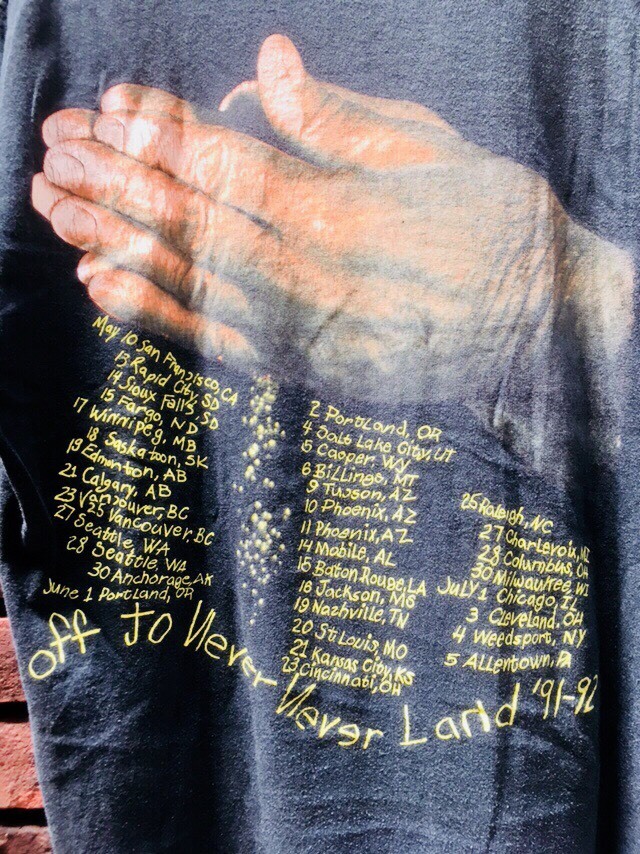 May 10 San Francisco, CA
13 Rapid City, SD
14 Sioux Falls, SD
15 Fargo, ND
17 Winnipeg, MB
18 Saskatoon, SK
19 Edmonton, AB
21 Calgary, AB
23 Vancouver, BC
25 Vancouver BC
27 Seattle, WA
28 Seattle, WA
30 Anchorage, AK
June 1 Portland, OR
2 Portland, OR
4 Salt Lake City, UT
5 Casper, WY
6 Billings, MT
9 Tuxson, AZ
10 Phoenix, AZ
11 Phoenix, AZ
14 Mobile, AL
16 Baton Rouge, LA
18 Jackson, MS
19 Nachville, TN
20 St Louis, MO
21 Kansas City, KS
23, Cincinnati, OH
25 Raleigh, NC
27 Charlevoix, MI
28 Columbus, OH
30 Milwaukee, WI
July 1 Chicago, IL
3 Cleveland, OH
4 Weedsport, NY
5 Allentown, PA
off to Never Never Land '91-92